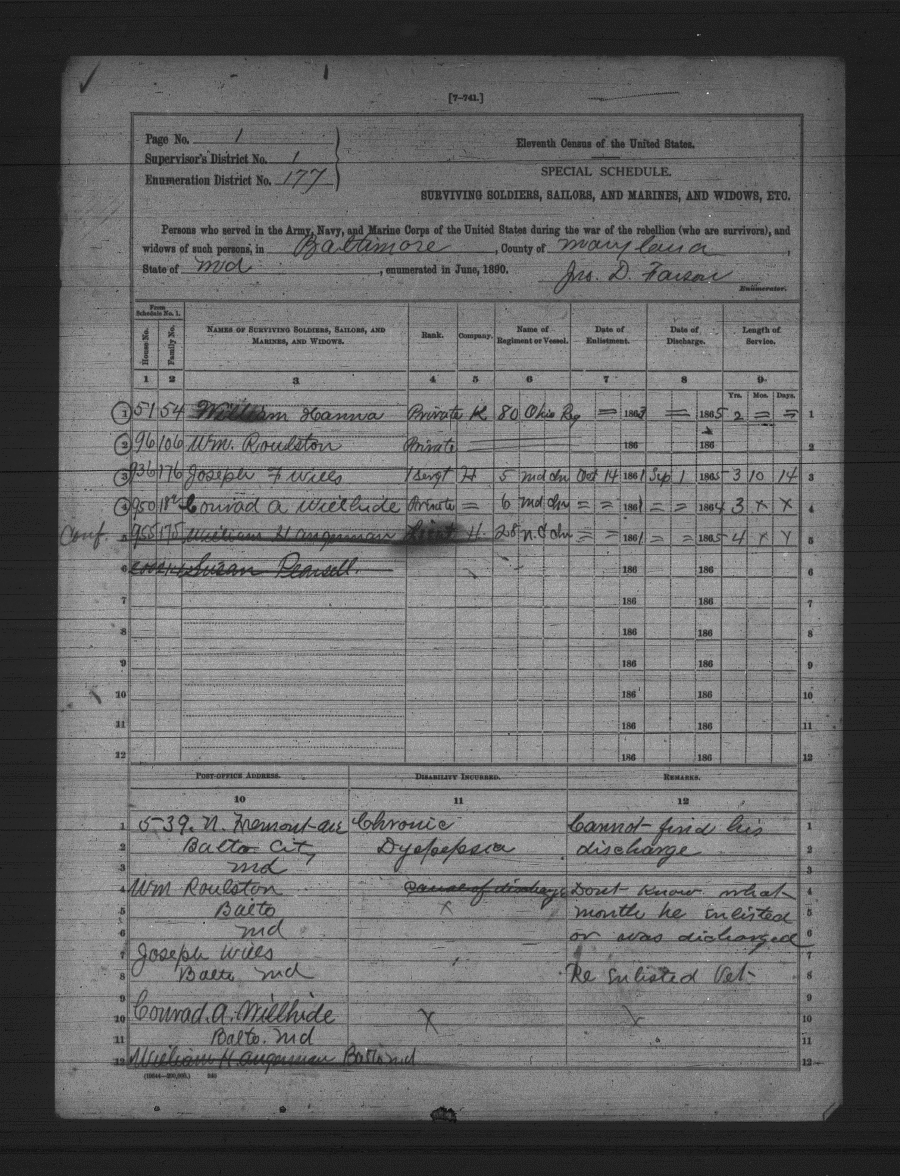 [7-741.]
Page No. 1
Supervisor's District No. 1
Enumeration District No. 177
Eleventh Census of the United States.
SPECIAL SCHEDULE.
SURVIVING SOLDIERS, SAILORS, AND MARINES, AND WIDOWS, ETC.
Persons who served in the Army, Navy, and Marine Corps of the United States during the war of the rebellion (who are survivors), and
widows of such persons, in Baltimore, County of Maryland,
State of Md, enumerated in June, 1890.
Jno. D.
Enumerator.
From Schedule No. 1.
House No. Family No. NAMES OF SURVIVING SOLDIERS, SAILORS, AND MARINES, AND WIDOWS. Rank. Company. Name of Regiment or Vessel. Date of Enlistment. Date of Discharge. Length of Service.
1 2 3 4 5 6 7 8 9
Yrs. Mos. Days.
1 51 54 William Hanna Private K 80 Ohio Rg = 1863 = 1865 2 = = 1
2 96 106 Wm. Roulston Private 186 186 2
3 936 176 Joseph F Wills 1 Sergt H 5 Md Inn Oct 14 1861 Sep 1 1865 3 10 14 3
4 950 Conrad A Willhide Private = 6 Md Inn = = 1861 = = 1864 3 x x 4
Conf. 5 955 175 William H Angerman Lieut H. 28 = = 1861 = = 1865 4 x x 5
6 Susan Pearsell. 186 186 6
7 186 186 7
8 186 186 8
9 186 186 9
10 186 186 10
11 186 186 11
12 186 186 12
POST-OFFICE ADDRESS. DISABILITY INCURRED. REMARKS.
10 11 12
1 539. N. Fremont Ave Chronic Cannot find his 1
2 Balto City, Dyspepsia discharge 2
3 Md 3
4 Wm Roulston cause of discharge Dont know what 4
5 Balto x month he enlisted 5
6 Md or was discharged 6
7 Joseph Wills 7
8 Balto Md Re enlisted Vet 8
9 9
10 Conrad. A. Willhide x x 10
11 Balto. Md 11
12 William H Angerman Balto Md 12